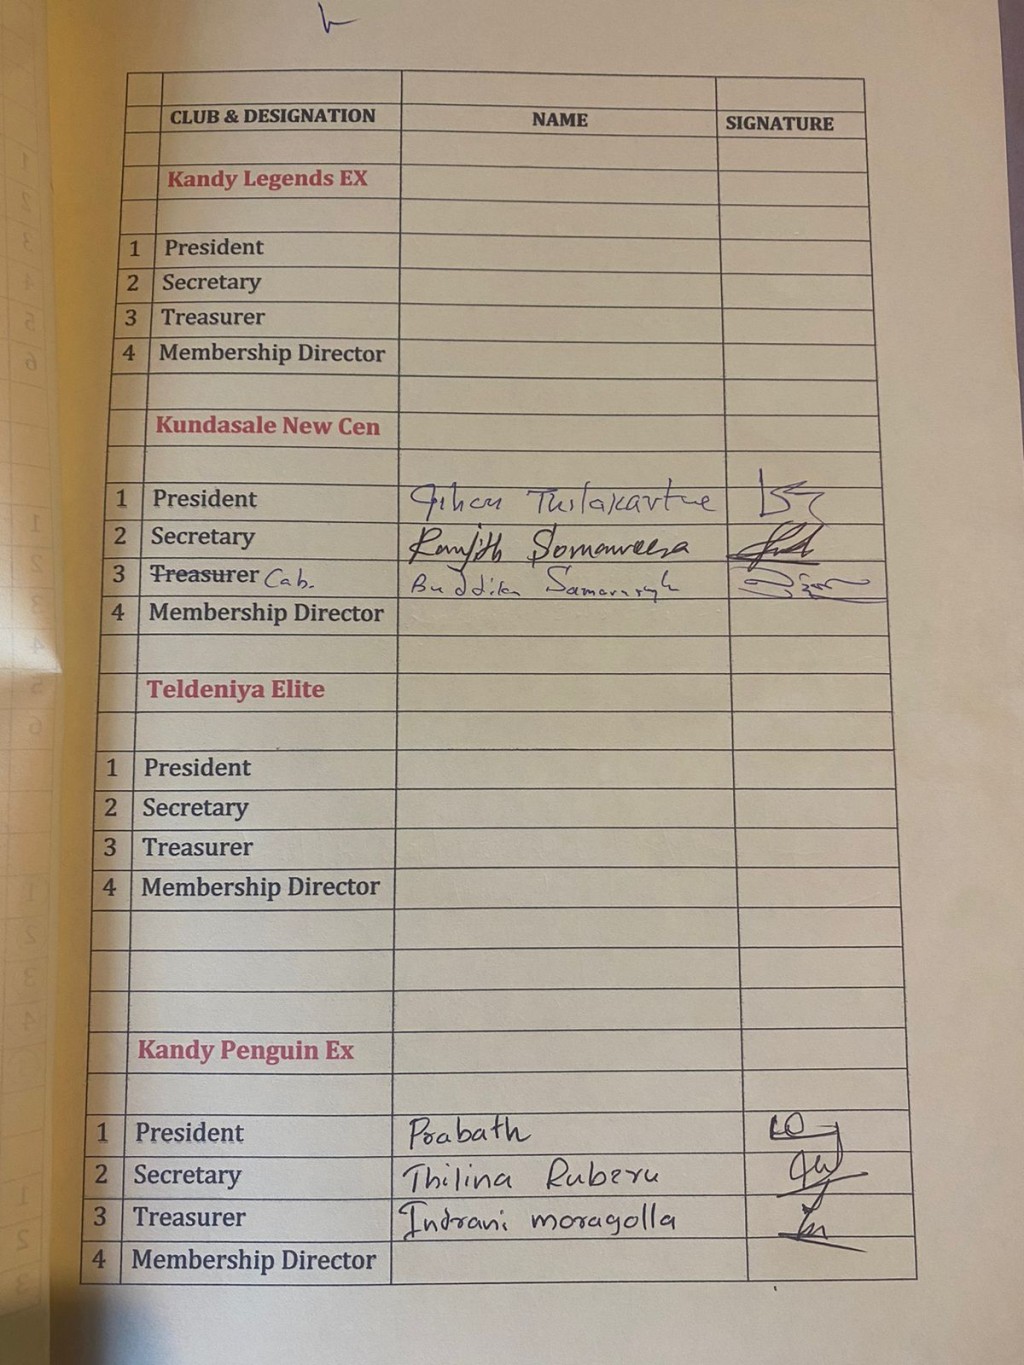 CLUB & DESIGNATION NAME SIGNATURE
Kandy Legends EX
1 President
2 Secretary
3 Treasurer
4 Membership Director
Kundasale New Cen
1 President Gihan Thilakartne
2 Secretary Ranjith Somaweera
3 Treasurer Cab. Buddika
4 Membership Director
Teldeniya Elite
1 President
2 Secretary
3 Treasurer
4 Membership Director
Kandy Penguin Ex
1 President Prabath
2 Secretary Thilina Ruberu
3 Treasurer Indrani moragolla
4 Membership Director